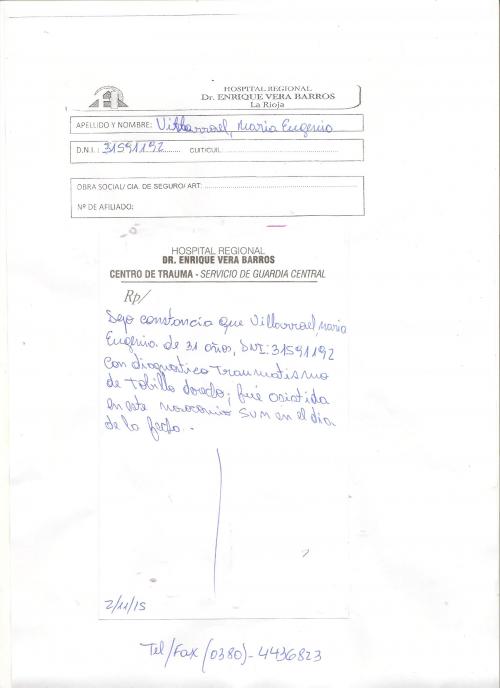 HOSPITAL REGIONAL
Dr. ENRIQUE VERA BARROS
La Rioja
APELLIDO Y NOMBRE: Villarroel, Maria Eugenia
D.N.I.: 31591192 CUIT/CUIL:
OBRA SOCIAL/ CIA. DE SEGURO/ ART:
Nº DE AFILIADO:
HOSPITAL REGIONAL
DR. ENRIQUE VERA BARROS
CENTRO DE TRAUMA - SERVICIO DE GUARDIA CENTRAL
Rp/
Dejo constancia que Villarroel, Maria
Eugenia de 31 años, DNI: 31591192
con diagnostico Traumatismo
de Tobillo ; fue asistida
en este nosocomio en el dia
de la fecha.-
2/11/15
Tel/Fax (0380)-4436823